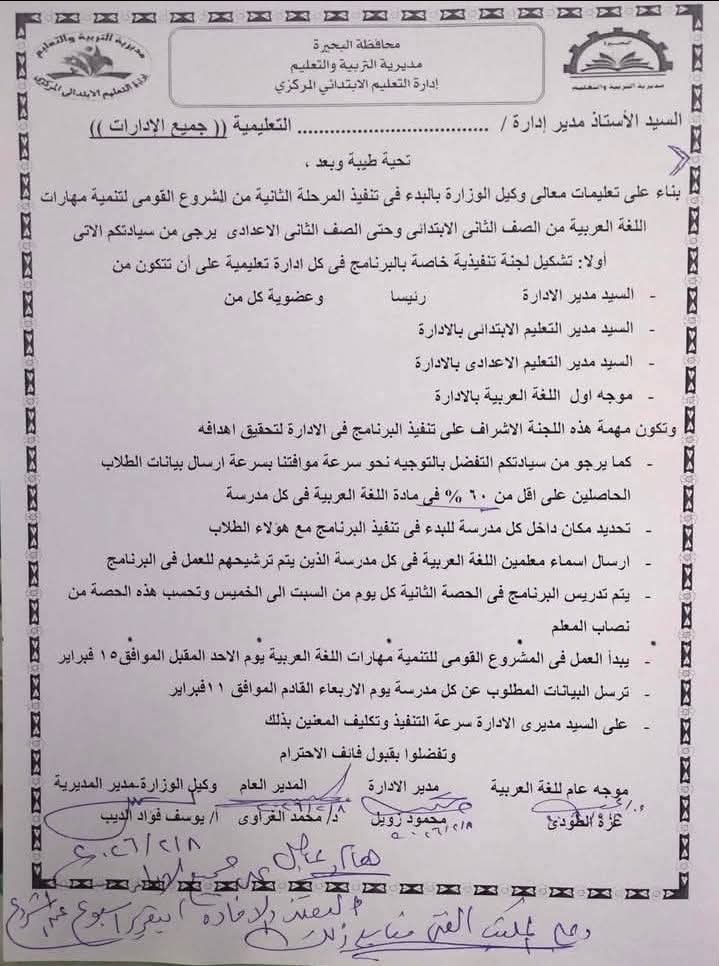 مديرية التربية والتعليم
إدارة التعليم الابتدائى المركزى
محافظة البحيرة
مديرية التربية والتعليم
إدارة التعليم الابتدائي المركزي
البحيرة
مديرية التربية والتعليم
السيد الأستاذ مدير إدارة / .................................. التعليمية (( جميع الإدارات ))
تحية طيبة وبعد ،
بناء على تعليمات معالى وكيل الوزارة بالبدء فى تنفيذ المرحلة الثانية من المشروع القومى لتنمية مهارات
اللغة العربية من الصف الثانى الابتدائى وحتى الصف الثانى الاعدادى يرجى من سيادتكم الاتى
أولا: تشكيل لجنة تنفيذية خاصة بالبرنامج فى كل ادارة تعليمية على أن تتكون من
- السيد مدير الادارة رئيسا وعضوية كل من
- السيد مدير التعليم الابتدائى بالادارة
- السيد مدير التعليم الاعدادى بالادارة
- موجه اول اللغة العربية بالادارة
وتكون مهمة هذه اللجنة الاشراف على تنفيذ البرنامج فى الادارة لتحقيق اهدافه
- كما يرجو من سيادتكم التفضل بالتوجيه نحو سرعة موافتنا بسرعة ارسال بيانات الطلاب
الحاصلين على اقل من ٦٠ % فى مادة اللغة العربية فى كل مدرسة
- تحديد مكان داخل كل مدرسة للبدء فى تنفيذ البرنامج مع هؤلاء الطلاب
- ارسال اسماء معلمين اللغة العربية فى كل مدرسة الذين يتم ترشيحهم للعمل فى البرنامج
- يتم تدريس البرنامج فى الحصة الثانية كل يوم من السبت الى الخميس وتحسب هذه الحصة من
نصاب المعلم
- يبدأ العمل فى المشروع القومى للتنمية مهارات اللغة العربية يوم الاحد المقبل الموافق١٥ فبراير
- ترسل البيانات المطلوب عن كل مدرسة يوم الاربعاء القادم الموافق ١١فبراير
- على السيد مديرى الادارة سرعة التنفيذ وتكليف المعنين بذلك
وتفضلوا بقبول فائف الاحترام
موجه عام للغة العربية مدير الادارة المدير العام وكيل الوزارة-مدير المديرية
عزة الطودى محمود زويل د/ محمد الغراوى أ/ يوسف فؤاد الديب
٢٠٢٦/٢/٨
هام وعاجل